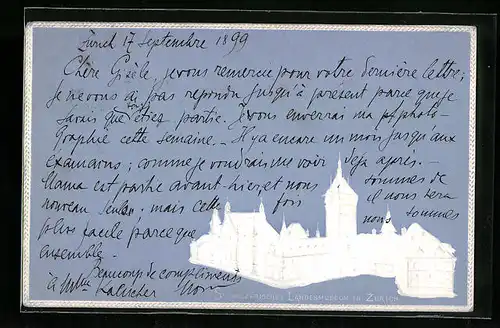 Zürich 17 Septembre 1899
Chère Gisèle, je vous remercie pour votre dernière lettre;
je ne vous ai pas repondu jusqu'à présent parce que je
savais que vous étiez partie. Je vous enverrai ma photo-
graphie cette semaine. - Il y a encore un mois jusqu'aux
examens; comme je voudrais me voir déjà après. -
Mama est partie avant-hier et nous sommes de
nouveau seules. mais cette fois il nous sera
plus facile parce que nous sommes
ensemble. -
Beaucoup de compliments
à Mme Kalischer
Schweizerisches Landesmuseum in Zürich